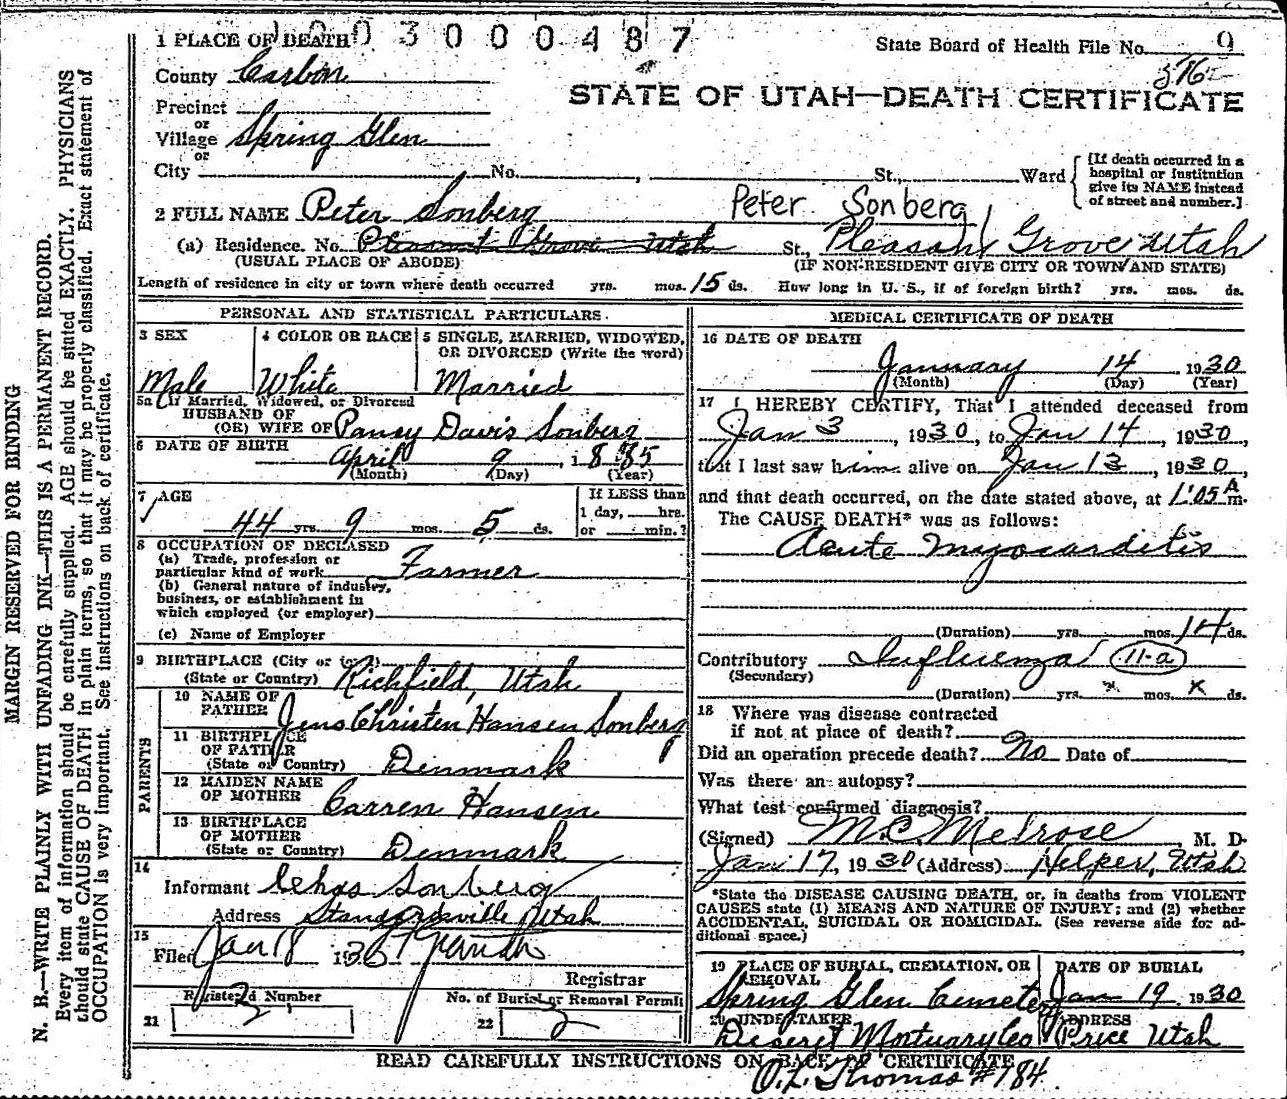 1003000487
1 PLACE OF DEATH
State Board of Health File No. 9
County Carbon
STATE OF UTAH—DEATH CERTIFICATE
Precinct
or
Village Spring Glen
or
City No. , St., Ward
[If death occurred in a hospital or institution give its NAME instead of street and number.]
2 FULL NAME Peter Sonberg Peter Sonberg
(a) Residence. No. Pleasant Grove Utah St., Pleasant Grove Utah
(USUAL PLACE OF ABODE) (IF NON-RESIDENT GIVE CITY OR TOWN AND STATE)
Length of residence in city or town where death occurred yrs. mos. 15 ds. How long in U. S., if of foreign birth? yrs. mos. ds.
PERSONAL AND STATISTICAL PARTICULARS.
3 SEX
Male
4 COLOR OR RACE
White
5 SINGLE, MARRIED, WIDOWED,
OR DIVORCED (Write the word)
Married
5a If Married, Widowed, or Divorced
HUSBAND OF
(OR) WIFE OF Pansy Davis Sonberg
6 DATE OF BIRTH
April 9, 1885
(Month) (Day) (Year)
7 AGE
44 yrs. 9 mos. 5 ds.
If LESS than
1 day, hrs.
or min.?
8 OCCUPATION OF DECEASED
(a) Trade, profession or
particular kind of work Farmer
(b) General nature of industry,
business, or establishment in
which employed (or employer)
(c) Name of Employer
9 BIRTHPLACE (City or town)
(State or Country) Richfield, Utah
PARENTS
10 NAME OF
FATHER Jens Christen Hansen Sonberg
11 BIRTHPLACE
OF FATHER
(State or Country) Dinmark
12 MAIDEN NAME
OF MOTHER Carren Hansen
13 BIRTHPLACE
OF MOTHER
(State or Country) Dinmark
14
Informant Sonberg
Address Standardville Utah
15
Filed Jan 18 1930
Registrar
Registered Number
21 2
No. of Burial or Removal Permit
22 2
MEDICAL CERTIFICATE OF DEATH
16 DATE OF DEATH
January 14 1930
(Month) (Day) (Year)
17 I HEREBY CERTIFY, That I attended deceased from
Jan 3, 1930, to Jan 14, 1930,
that I last saw him alive on Jan 13, 1930,
and that death occurred, on the date stated above, at 1:05 A m.
The CAUSE DEATH* was as follows:
Acute Myocarditis
(Duration) yrs. mos. 14 ds.
Contributory Influenza 11-a
(Secondary)
(Duration) yrs. x mos. x ds.
18 Where was disease contracted
if not at place of death?
Did an operation precede death? No Date of
Was there an autopsy?
What test confirmed diagnosis?
(Signed) M.C. Melrose M. D.
Jan 17, 1930 (Address) Helper, Utah
*State the DISEASE CAUSING DEATH, or, in deaths from VIOLENT
CAUSES state (1) MEANS AND NATURE OF INJURY; and (2) whether
ACCIDENTAL, SUICIDAL OR HOMICIDAL. (See reverse side for ad-
ditional space.)
19 PLACE OF BURIAL, CREMATION, OR
REMOVAL
Spring Glen Cemetery
DATE OF BURIAL
Jan 19 1930
20 UNDERTAKER
Deseret Mortuary Co
ADDRESS
Price Utah
READ CAREFULLY INSTRUCTIONS ON BACK OF CERTIFICATE
O.L. Thomas #184
MARGIN RESERVED FOR BINDING
N. B.—WRITE PLAINLY WITH UNFADING INK—THIS IS A PERMANENT RECORD.
Every item of information should be carefully supplied. AGE should be stated EXACTLY. PHYSICIANS
should state CAUSE OF DEATH in plain terms, so that it may be properly classified. Exact statement of
OCCUPATION is very important. See instructions on back of certificate.